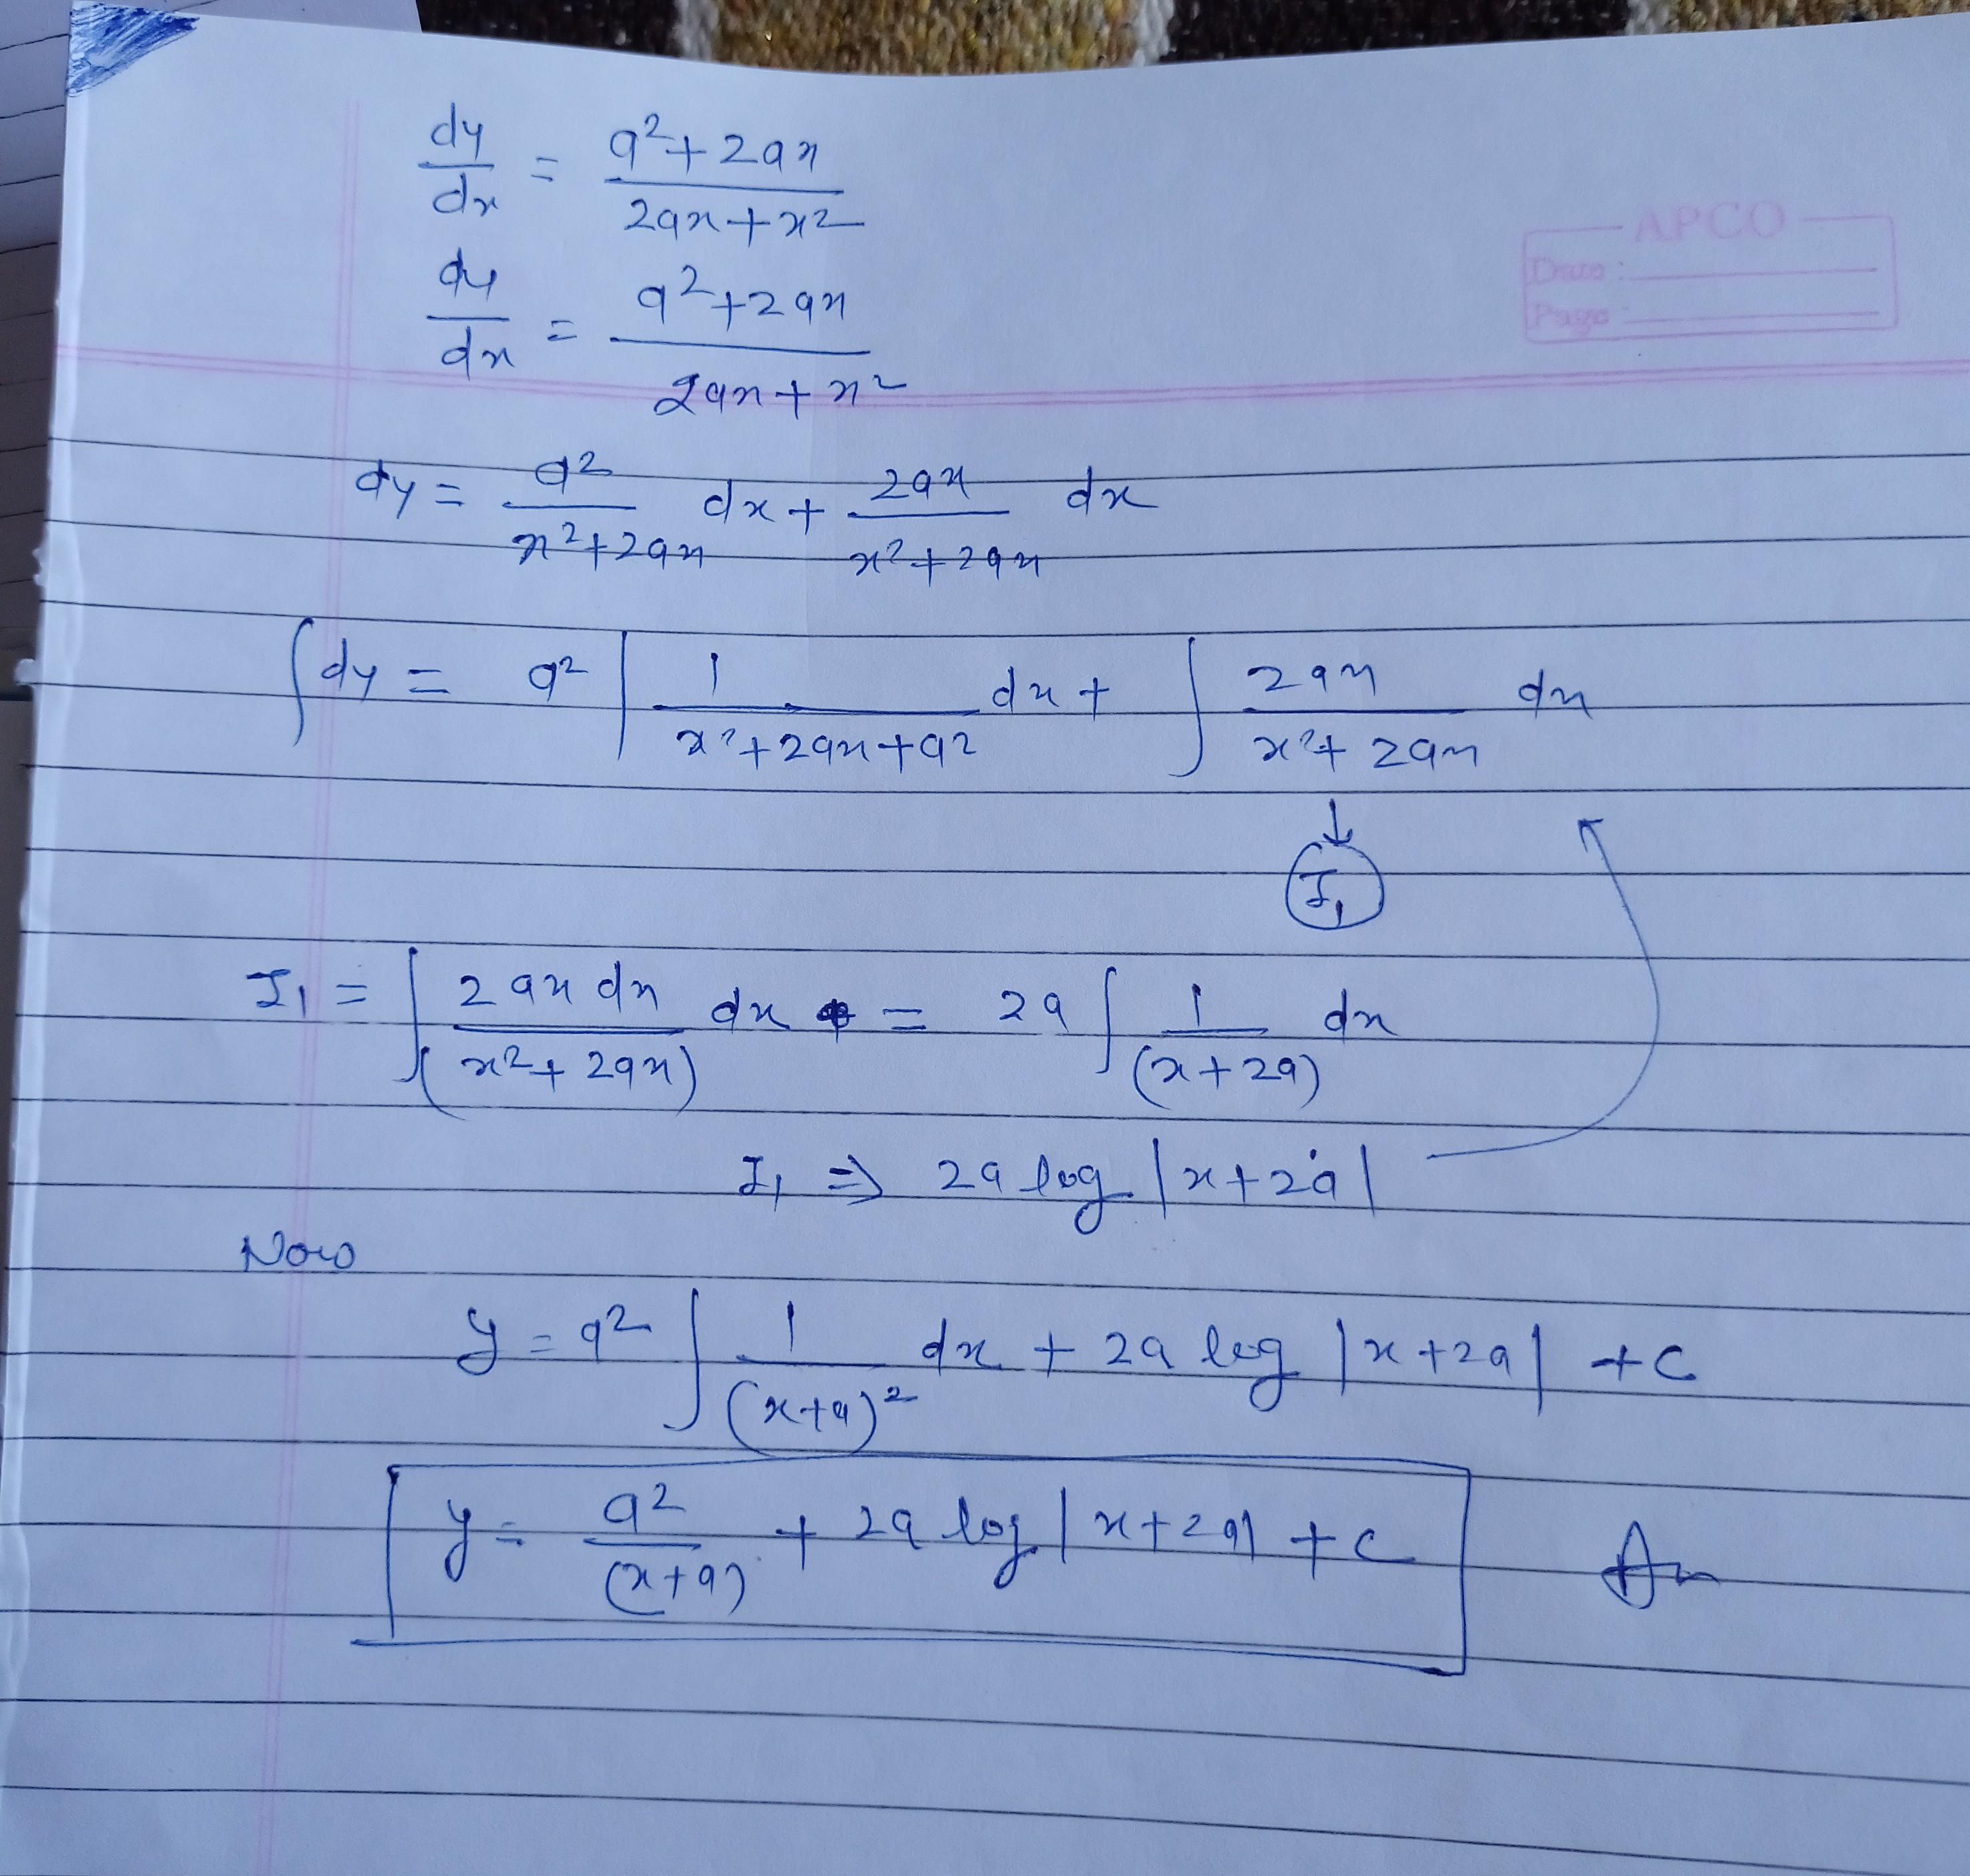 dy/dx = a²+2ax / 2ax+x²
APCO
Date :
Page :
dy/dx = a²+2ax / 2ax+x²
dy = a² / x²+2ax dx + 2ax / x²+2ax dx
∫dy = a² ∫ 1 / x²+2ax+a² dx + ∫ 2ax / x²+2ax dx
↓
I₁
I₁ = ∫ 2ax dx / (x²+2ax) dx = 2a ∫ 1 / (x+2a) dx
I₁ ⇒ 2a log |x+2a|
Now
y = a² ∫ 1 / (x+a)² dx + 2a log |x+2a| + c
y = a² / (x+a) + 2a log |x+2a| + c An